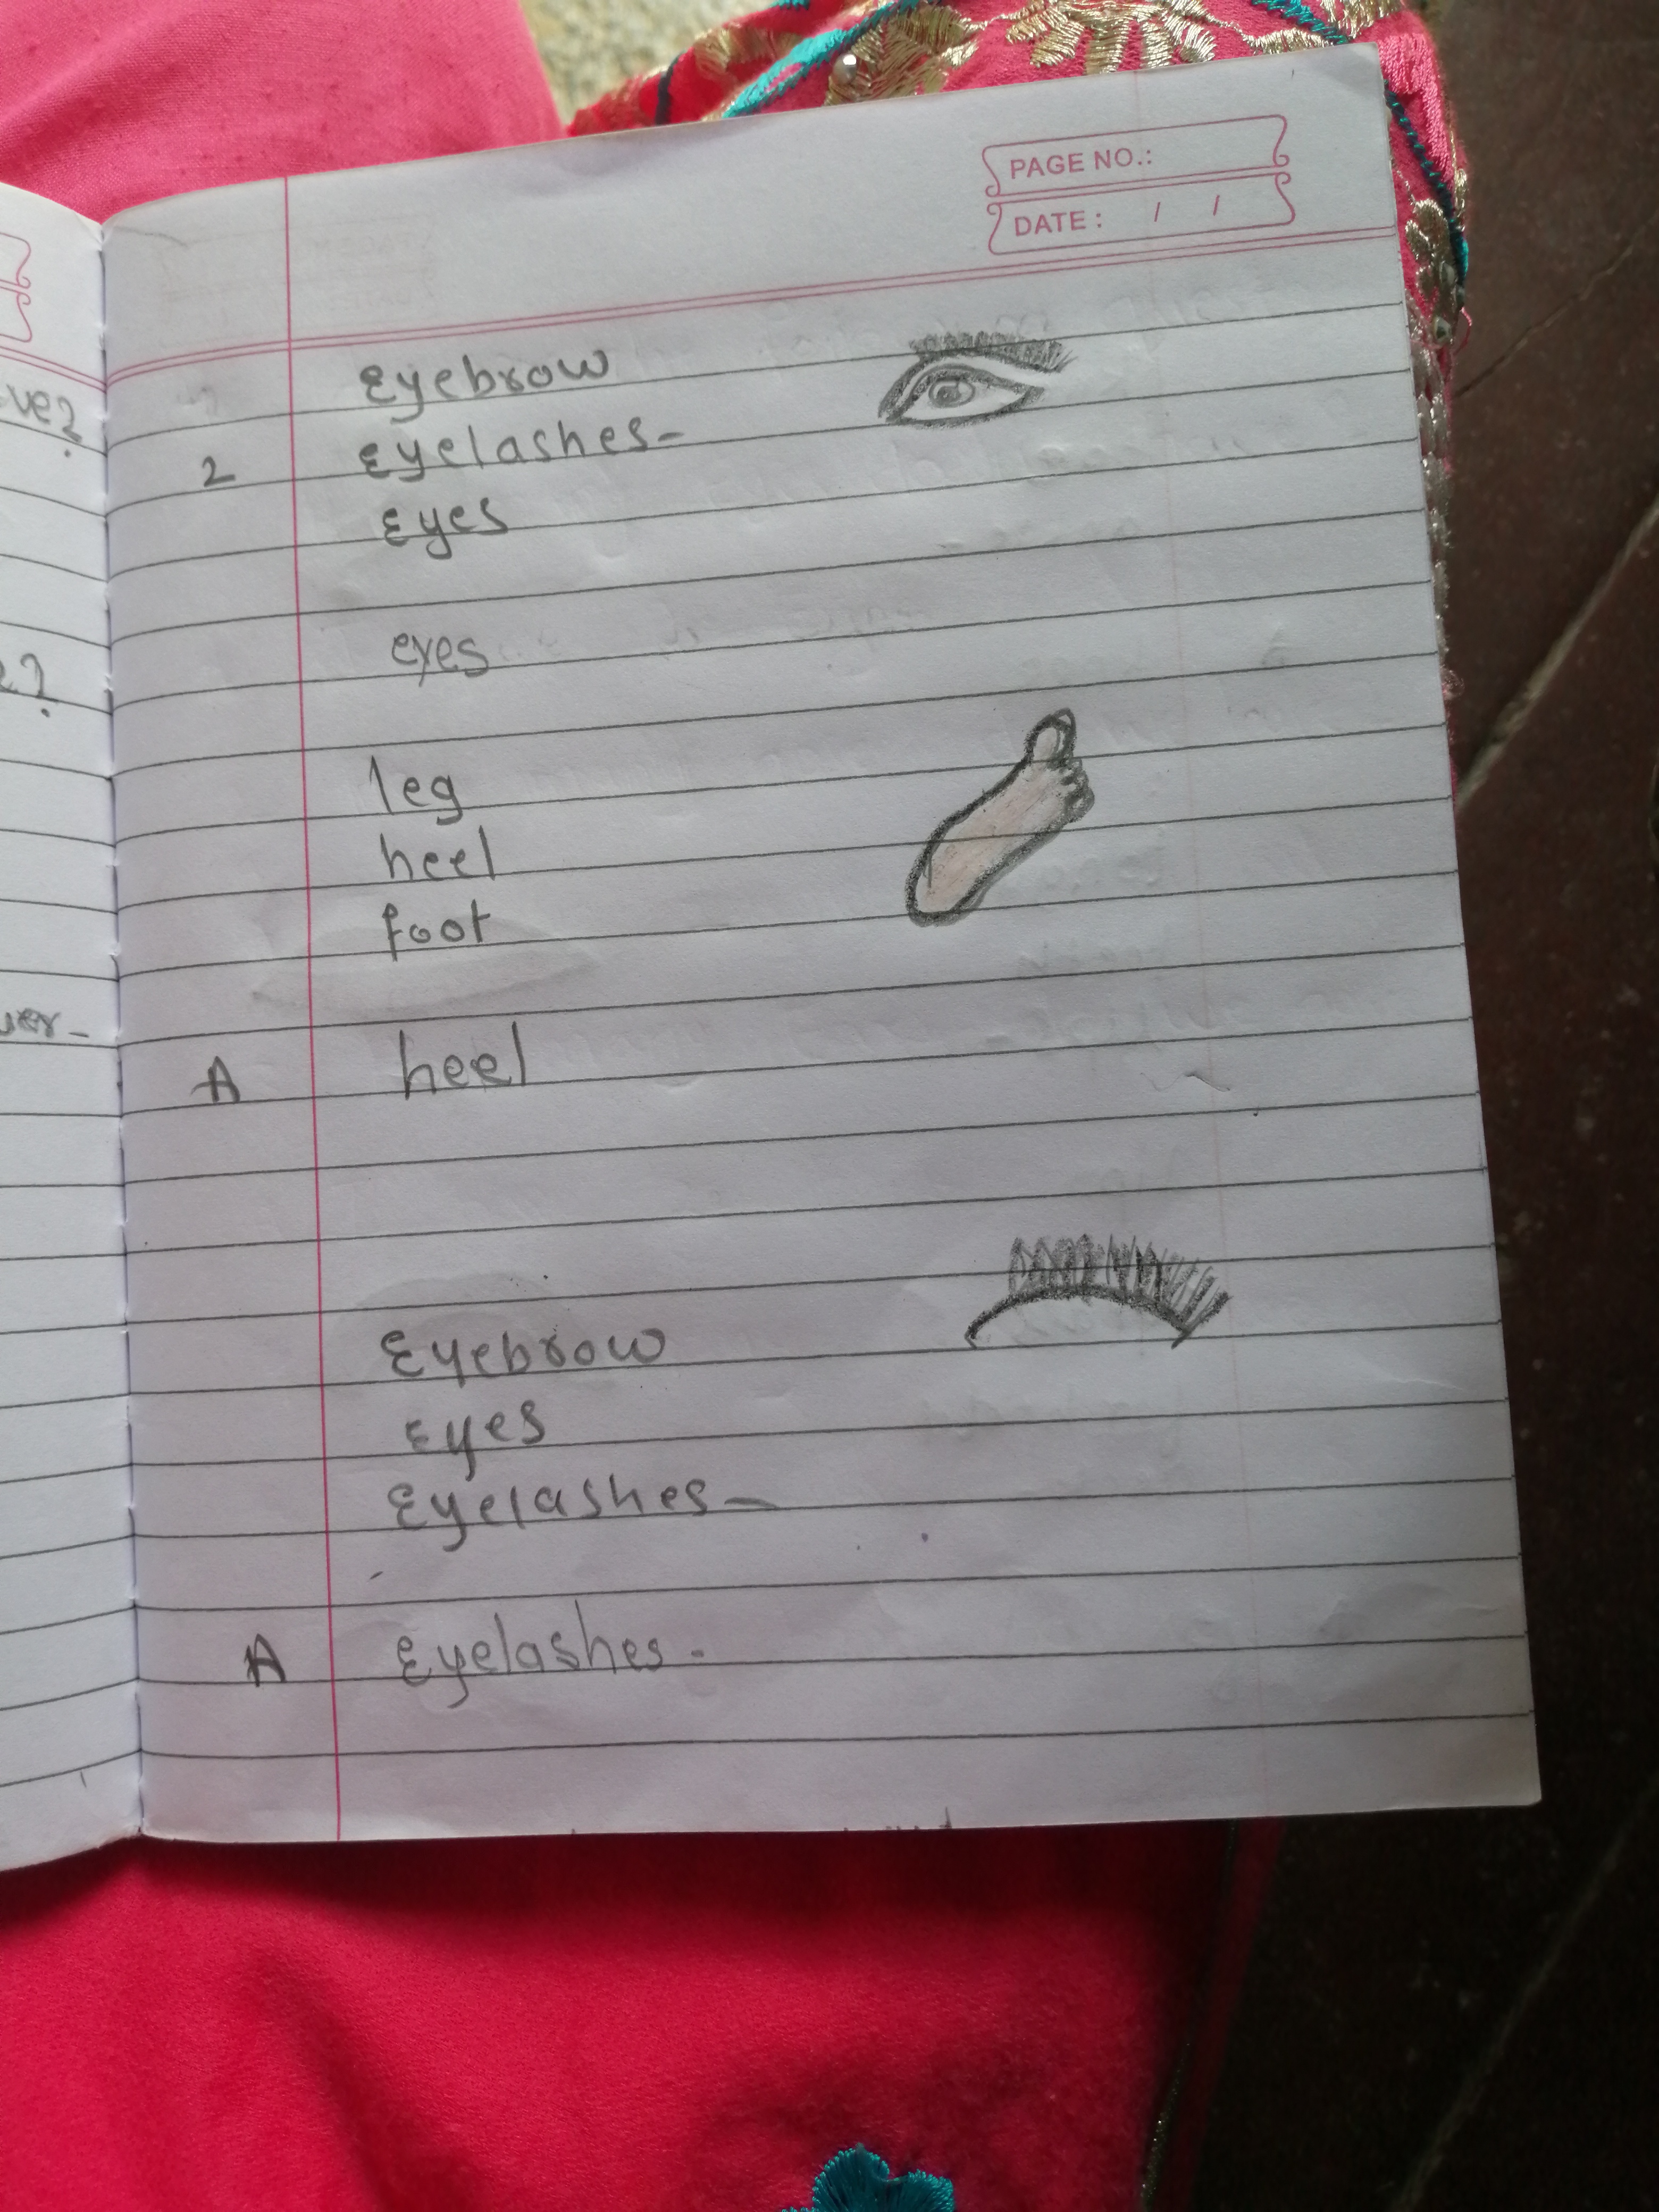 PAGE NO.:
DATE: / /
ve?
Eyebrow
2 Eyelashes-
Eyes
eyes
?
leg
heel
foot
ver-
A heel
Eyebrow
Eyes
Eyelashes-
A Eyelashes.